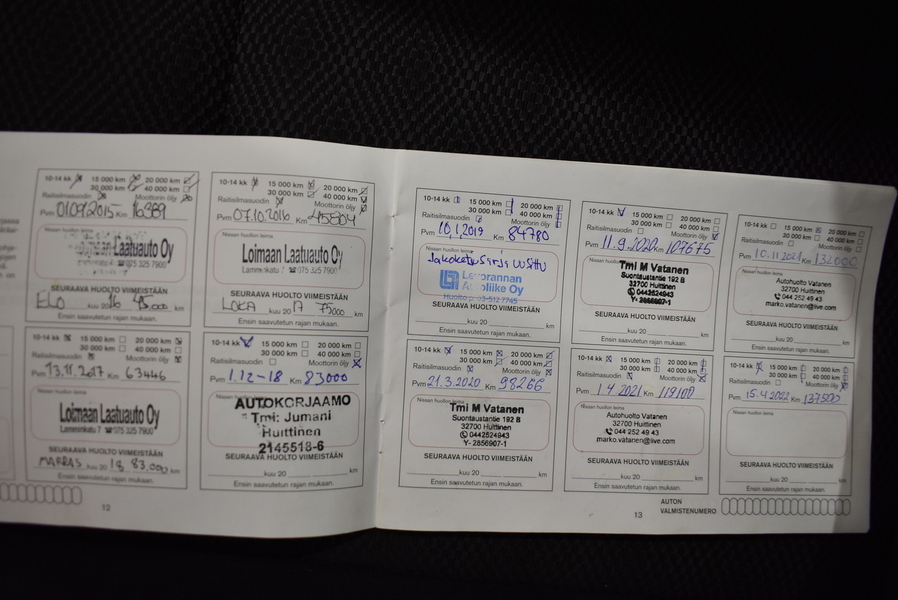 10-14 kk 15 000 km 20 000 km
30 000 km 40 000 km
Raitisilmasuodin Moottorin öljy
Pvm 01.09.2015 Km 16389
Laatuauto Oy
Lammenkatu 7 ☎ 075 325 7900
SEURAAVA HUOLTO VIIMEISTÄÄN
ELO kuu 20 16 45.000 km
Ensin saavutetun rajan mukaan.
10-14 kk 15 000 km 20 000 km
30 000 km 40 000 km
Raitisilmasuodin Moottorin öljy
Pvm 07.10.2016 Km 45804
Nissan huollon leima
Loimaan Laatuauto Oy
Lammenkatu 7 ☎ 075 325 7900
SEURAAVA HUOLTO VIIMEISTÄÄN
LOKA kuu 20 17 75000 km
Ensin saavutetun rajan mukaan.
10-14 kk 15 000 km 20 000 km
30 000 km 40 000 km
Raitisilmasuodin Moottorin öljy
Pvm 13.11.2017 Km 63446
Loimaan Laatuauto Oy
Lammenkatu 7 ☎ 075 325 7900
SEURAAVA HUOLTO VIIMEISTÄÄN
MARRAS kuu 20 18 83.000 km
Ensin saavutetun rajan mukaan.
10-14 kk 15 000 km 20 000 km
30 000 km 40 000 km
Raitisilmasuodin Moottorin öljy
Pvm 1.12-18 Km 83000
AUTOKORJAAMO
Tmi: Jumani
Huittinen
2145518-6
SEURAAVA HUOLTO VIIMEISTÄÄN
kuu 20 km
Ensin saavutetun rajan mukaan.
12
10-14 kk 15 000 km 20 000 km
30 000 km 40 000 km
Raitisilmasuodin Moottorin öljy
Pvm 10.1.2019 Km 84780
Nissan huollon leima
Jakoketju sirja uusittu
Levorannan
Autoliike Oy
Huolto p. 03-512 7745
SEURAAVA HUOLTO VIIMEISTÄÄN
kuu 20 km
Ensin saavutetun rajan mukaan.
10-14 kk 15 000 km 20 000 km
30 000 km 40 000 km
Raitisilmasuodin Moottorin öljy
Pvm 11.9.2020 Km 107675
Nissan huollon leima
Tmi M Vatanen
Suontaustantie 192 B
32700 Huittinen
0442524943
Y- 2856907-1
SEURAAVA HUOLTO VIIMEISTÄÄN
kuu 20 km
Ensin saavutetun rajan mukaan.
10-14 kk 15 000 km 20 000 km
30 000 km 40 000 km
Raitisilmasuodin Moottorin öljy
Pvm 10.11.2021 Km 132000
Nissan huollon leima
Autohuolto Vatanen
32700 Huittinen
044 252 49 43
marko.vatanen@live.com
SEURAAVA HUOLTO VIIMEISTÄÄN
kuu 20 km
Ensin saavutetun rajan mukaan.
10-14 kk 15 000 km 20 000 km
30 000 km 40 000 km
Raitisilmasuodin Moottorin öljy
Pvm 21.3.2020 Km 98266
Nissan huollon leima
Tmi M Vatanen
Suontaustantie 192 B
32700 Huittinen
0442524943
Y- 2856907-1
SEURAAVA HUOLTO VIIMEISTÄÄN
kuu 20 km
Ensin saavutetun rajan mukaan.
10-14 kk 15 000 km 20 000 km
30 000 km 40 000 km
Raitisilmasuodin Moottorin öljy
Pvm 1.4.2021 Km 119100
Nissan huollon leima
Autohuolto Vatanen
32700 Huittinen
044 252 49 43
marko.vatanen@live.com
SEURAAVA HUOLTO VIIMEISTÄÄN
kuu 20 km
Ensin saavutetun rajan mukaan.
10-14 kk 15 000 km 20 000 km
30 000 km 40 000 km
Raitisilmasuodin Moottorin öljy
Pvm 15.4.2022 Km 137500
Nissan huollon leima
SEURAAVA HUOLTO VIIMEISTÄÄN
kuu 20 km
Ensin saavutetun rajan mukaan.
13
AUTON
VALMISTENUMERO